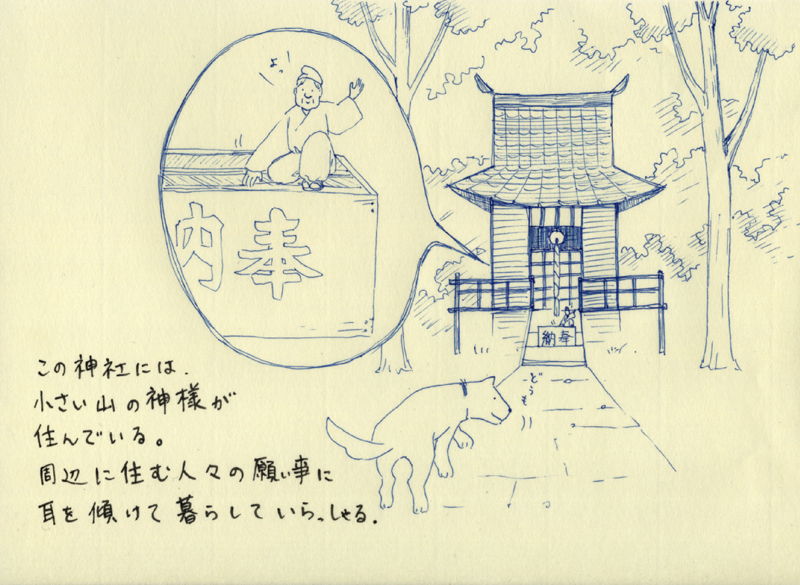 よっ
内奉
納奉
どうも
この神社には、
小さい山の神様が
住んでいる。
周辺に住む人々の願い事に
耳を傾けて暮らしていらっしゃる.